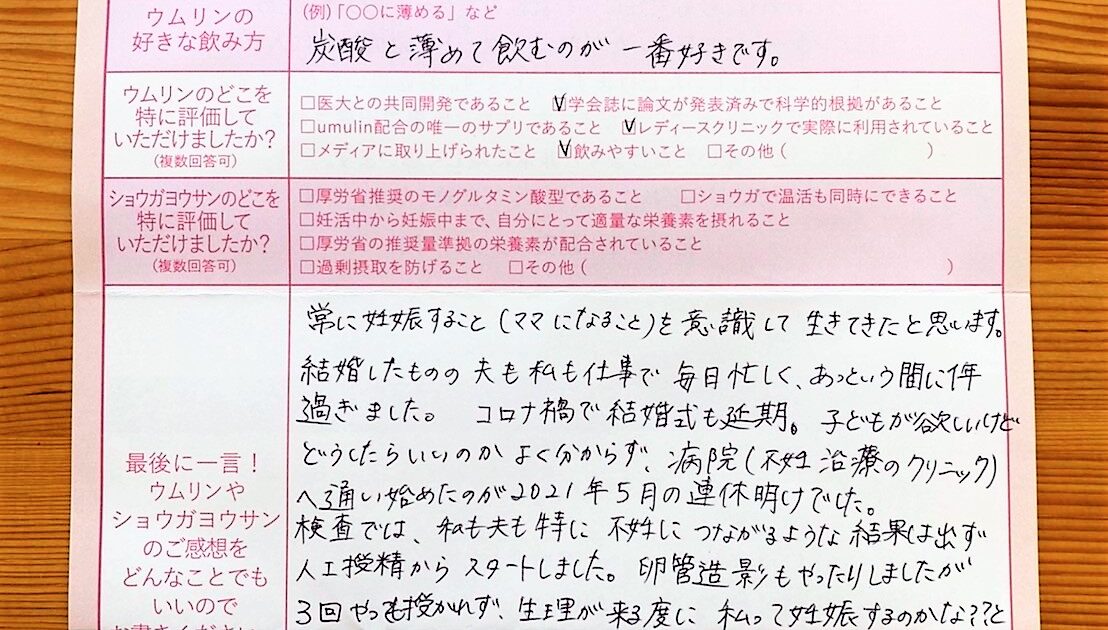 ウムリンの
好きな飲み方
(例)「○○に薄める」など
炭酸と薄めて飲むのが一番好きです。
ウムリンのどこを
特に評価して
いただけましたか?
(複数回答可)
□医大との共同開発であること ☑学会誌に論文が発表済みで科学的根拠があること
□umulin配合の唯一のサプリであること ☑レディースクリニックで実際に利用されていること
□メディアに取り上げられたこと ☑飲みやすいこと □その他( )
ショウガヨウサンのどこを
特に評価して
いただけましたか?
(複数回答可)
□厚労省推奨のモノグルタミン酸型であること □ショウガで温活も同時にできること
□妊活中から妊娠中まで、自分にとって適量な栄養素を摂れること
□厚労省の推奨量準拠の栄養素が配合されていること
□過剰摂取を防げること □その他( )
最後に一言!
ウムリンや
ショウガヨウサン
のご感想を
どんなことでも
いいので
常に妊娠すること(ママになること)を意識して生きてきたと思います。
結婚したものの夫も私も仕事で毎日忙しく、あっという間に1年
過ぎました。コロナ禍で結婚式も延期。子どもが欲しいけど
どうしたらいいのかよく分からず、病院(不妊治療のクリニック)
へ通い始めたのが2021年5月の連休明けでした。
検査では、私も夫も特に不妊につながるような結果は出ず
人工授精からスタートしました。卵管造影もやったりしましたが
3回やっても授かれず、生理が来る度に私って妊娠するのかな??と